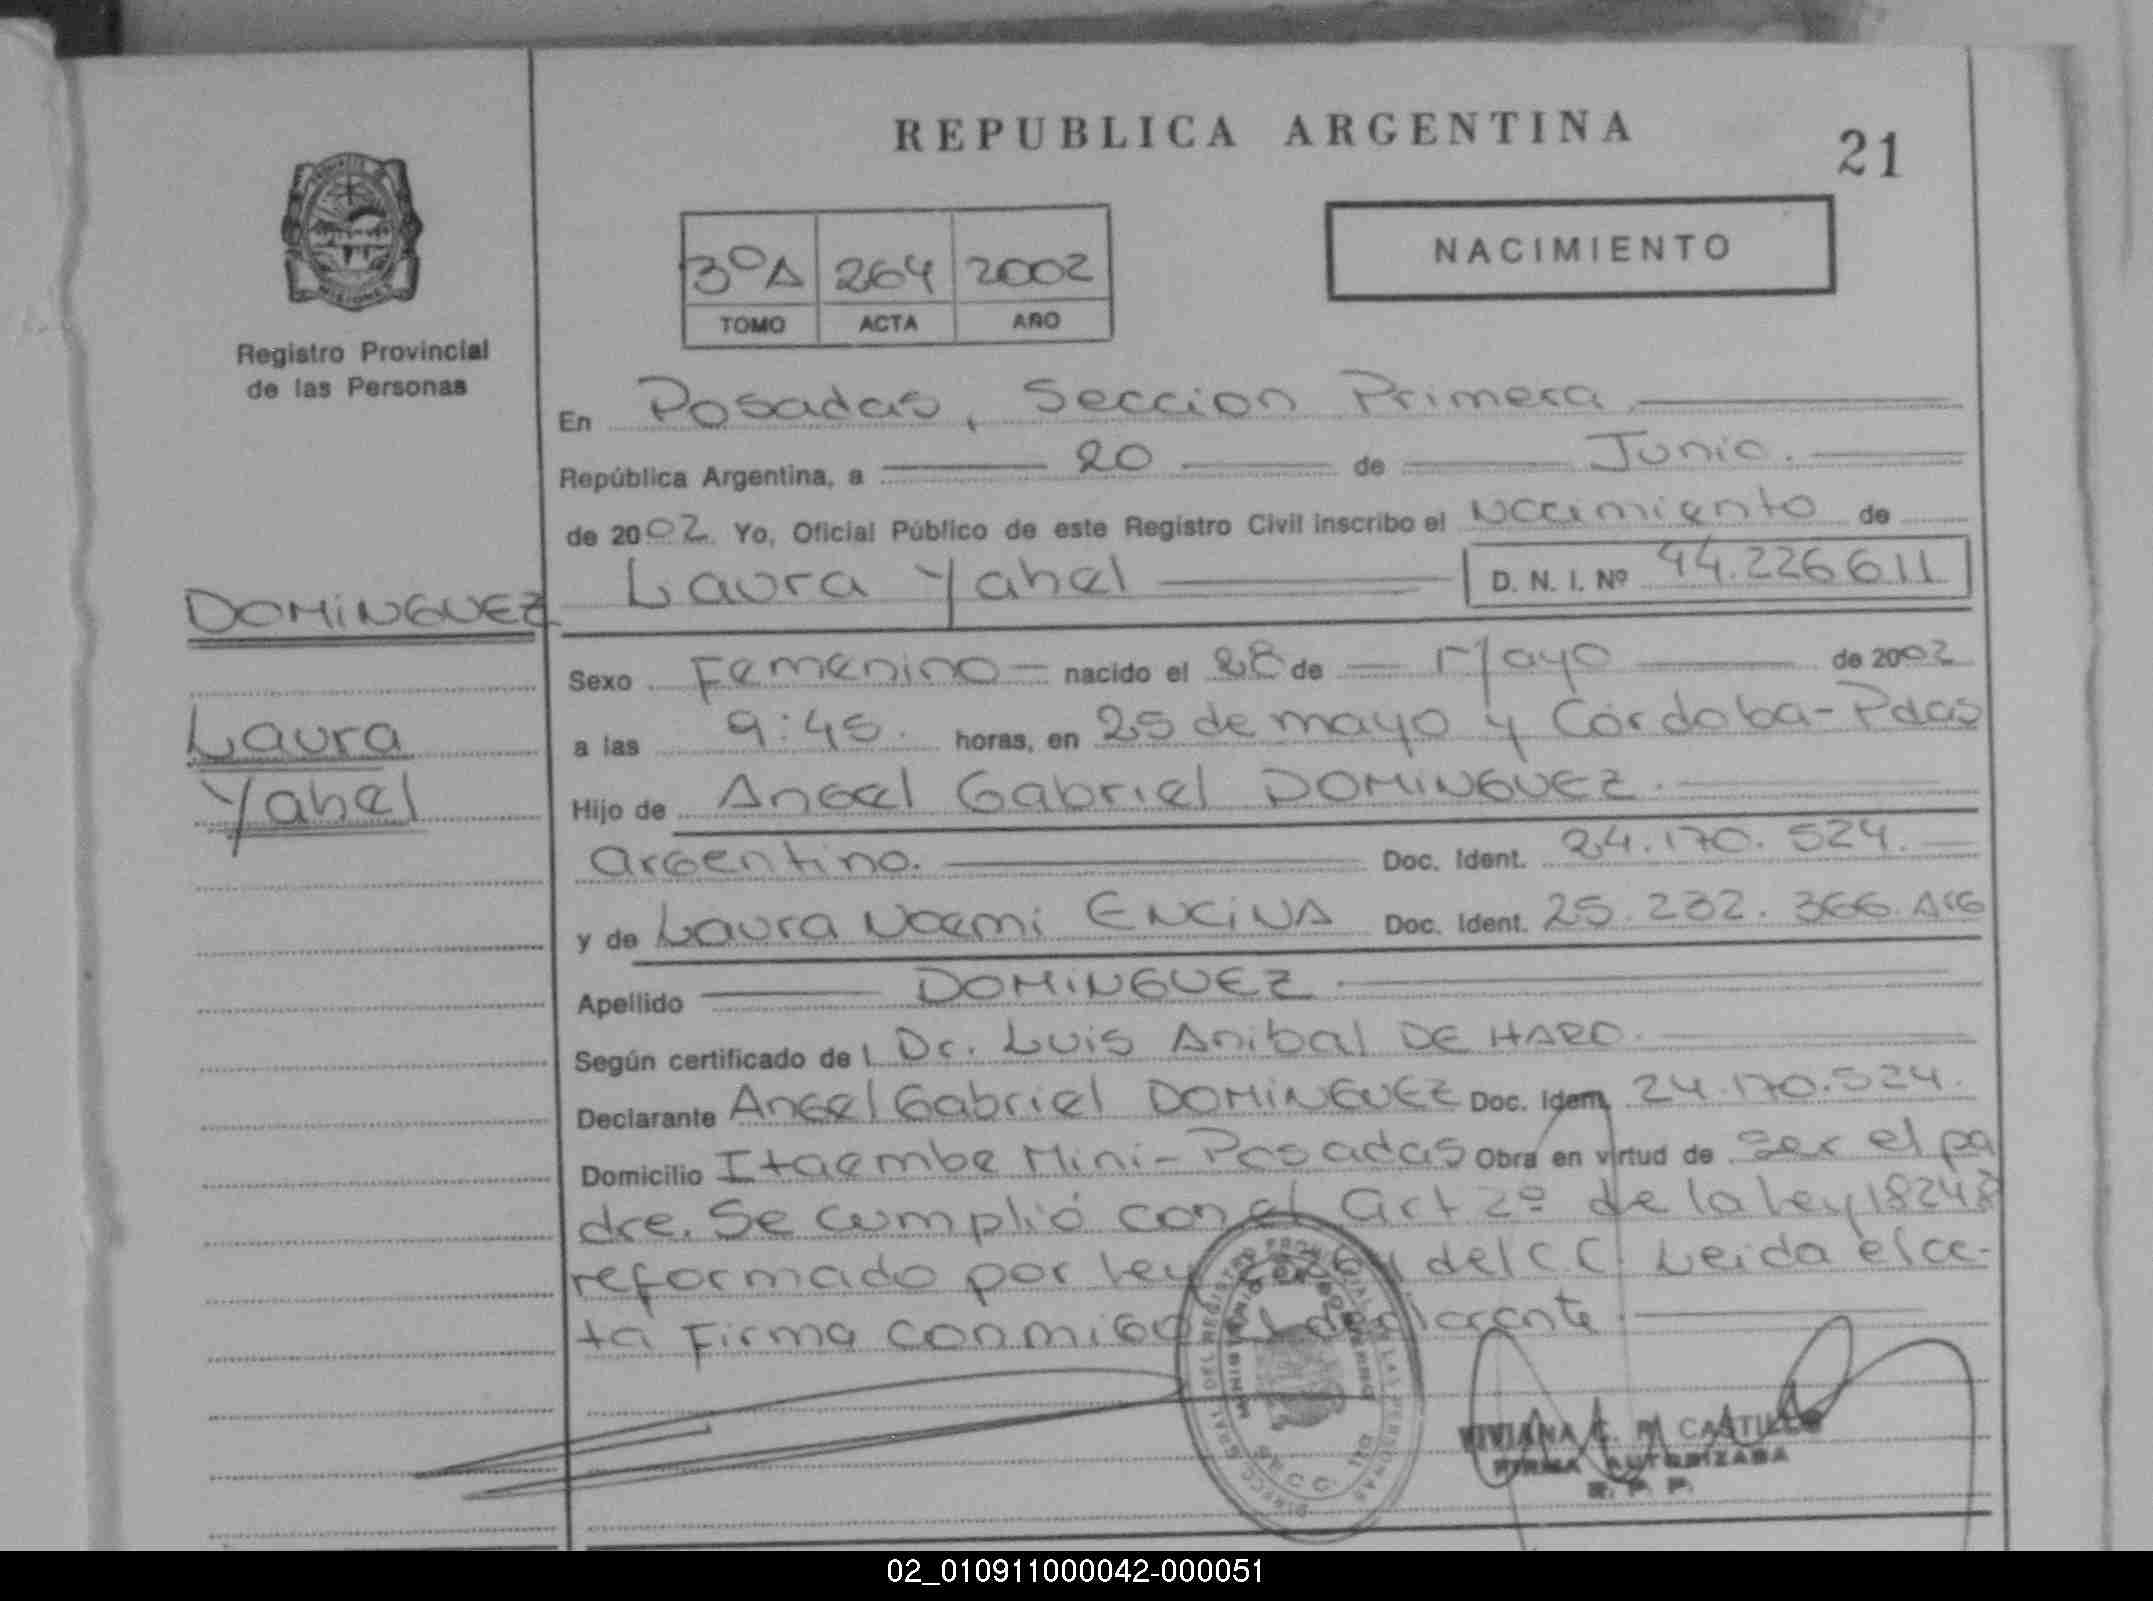 REPUBLICA ARGENTINA
21
NACIMIENTO
3º A 264 2002
TOMO ACTA AÑO
Registro Provincial
de las Personas
En Posadas, Seccion Primera
República Argentina, a 20 de Junio.
de 2002. Yo, Oficial Público de este Registro Civil inscribo el Nacimiento de
Laura Yahel D. N. I. Nº 44.226611
DOMINGUEZ
Laura
Yahel
Sexo Femenino nacido el 28 de Mayo de 2002
a las 9:45. horas, en 25 de mayo y Córdoba-Pdas
Hijo de Angel Gabriel DOMINGUEZ.
argentino. Doc. Ident. 24.170.524.
y de Laura Noemi ENCINA Doc. Ident. 25.232.366. Arg
Apellido DOMINGUEZ
Según certificado de l Dr. Luis Anibal DE HARO.
Declarante Angel Gabriel DOMINGUEZ Doc. Idem 24.170.524.
Domicilio Itaembe Mini-Posadas Obra en virtud de ser el pa
dre. Se cumplió con el art 2º de la ley 18248
reformado por ley del C.C. Leida el ac-
ta firma conmigo el declarante
MINISTERIO DE GOBIERNO
VIVIANA E. M CASTILLO
FIRMA AUTORIZADA
R. P. P.
02_010911000042-000051